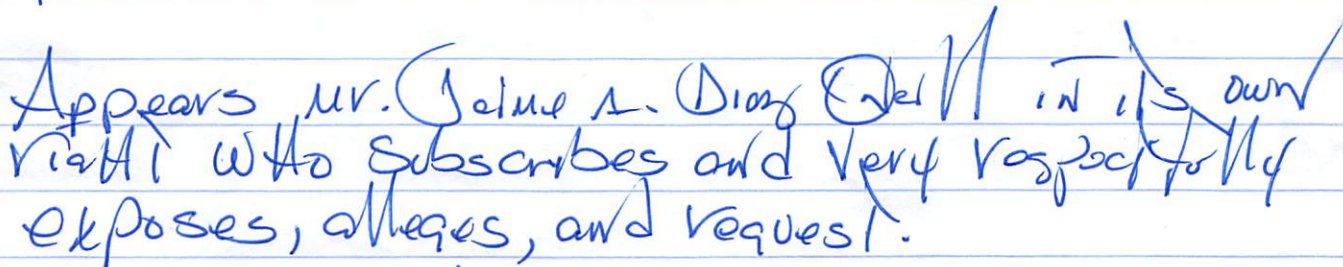 Appears Mr. Jaime A. Diaz O'Neill in its own
right who subscribes and very respectfully
exposes, alleges, and request.